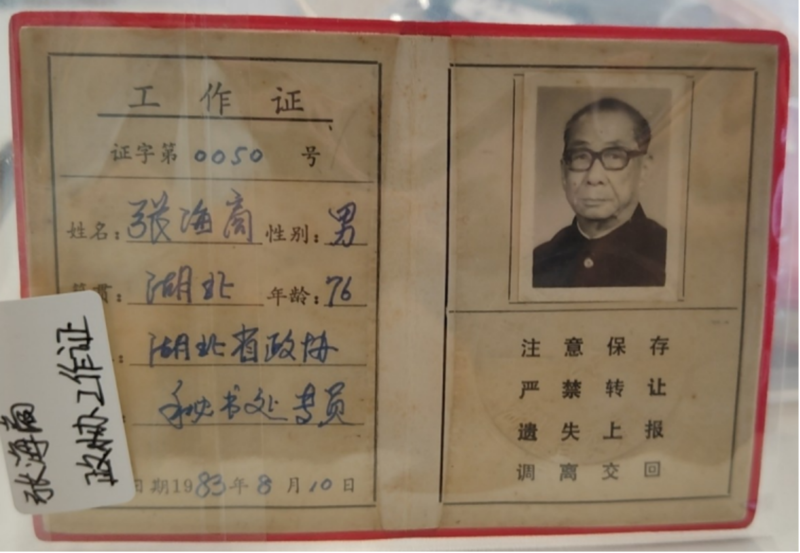 工作证
证字第 0050 号
姓名：张海商 性别：男
籍贯：湖北 年龄：76
湖北省政协
秘书处专员
日期1983年8月10日
注意保存
严禁转让
遗失上报
调离交回
张海商
政协工作证